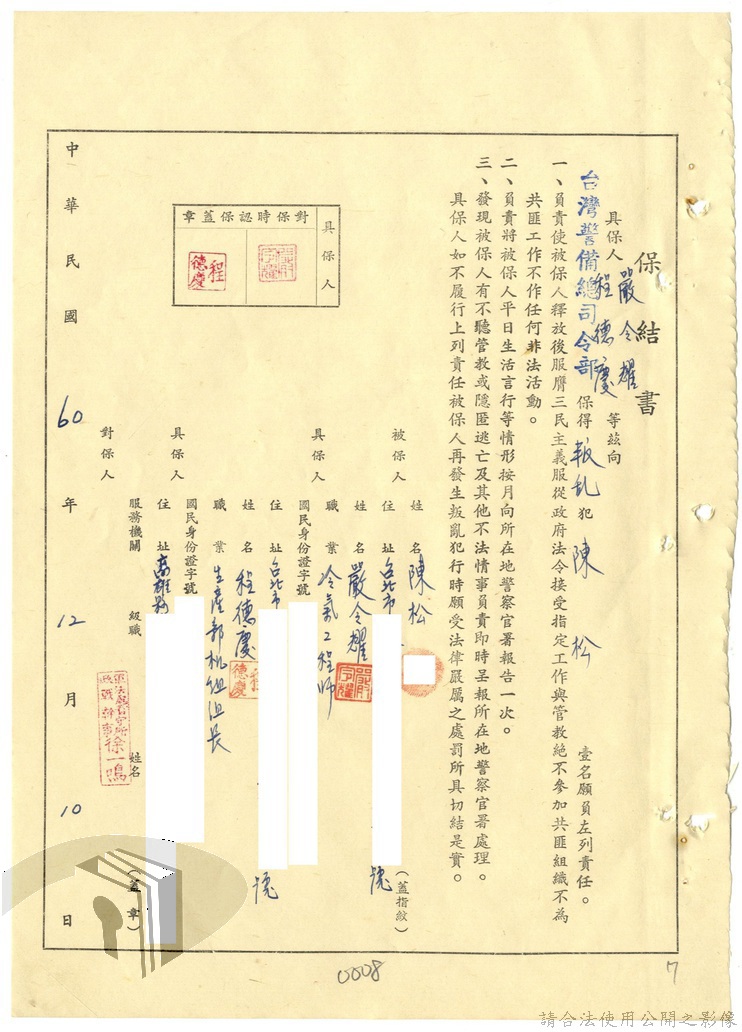 保結書
具保人 嚴令耀 程德慶 等茲向
台灣警備總司令部 保得 叛乱 犯 陳松 壹名願負左列責任。
一、負責使被保人釋放後服膺三民主義服從政府法令接受指定工作與管教絕不參加共匪組織不為
共匪工作不作任何非法活動。
二、負責將被保人平日生活言行等情形按月向所在地警察官署報告一次。
三、發現被保人有不聽管教或隱匿逃亡及其他不法情事負責即時呈報所在地警察官署處理。
具保人如不履行上列責任被保人再發生叛亂犯行時願受法律嚴厲之處罰所具切結是實。
具保人
對保時認保蓋章
程德慶
被保人 姓名 陳松 (蓋指紋)
住址 台北市 號
具保人 姓名 嚴令耀
職業 冷氣工程師
國民身份證字號
住址 台北市 號
姓名 程德慶
程德慶
職業 生產部机組組長
具保人 國民身份證字號
住址 高雄縣
對保人 服務機關 級職 姓名 (蓋章)
徐一鳴
中華民國 60 年 12 月 10 日
0008
7
請合法使用公開之影像